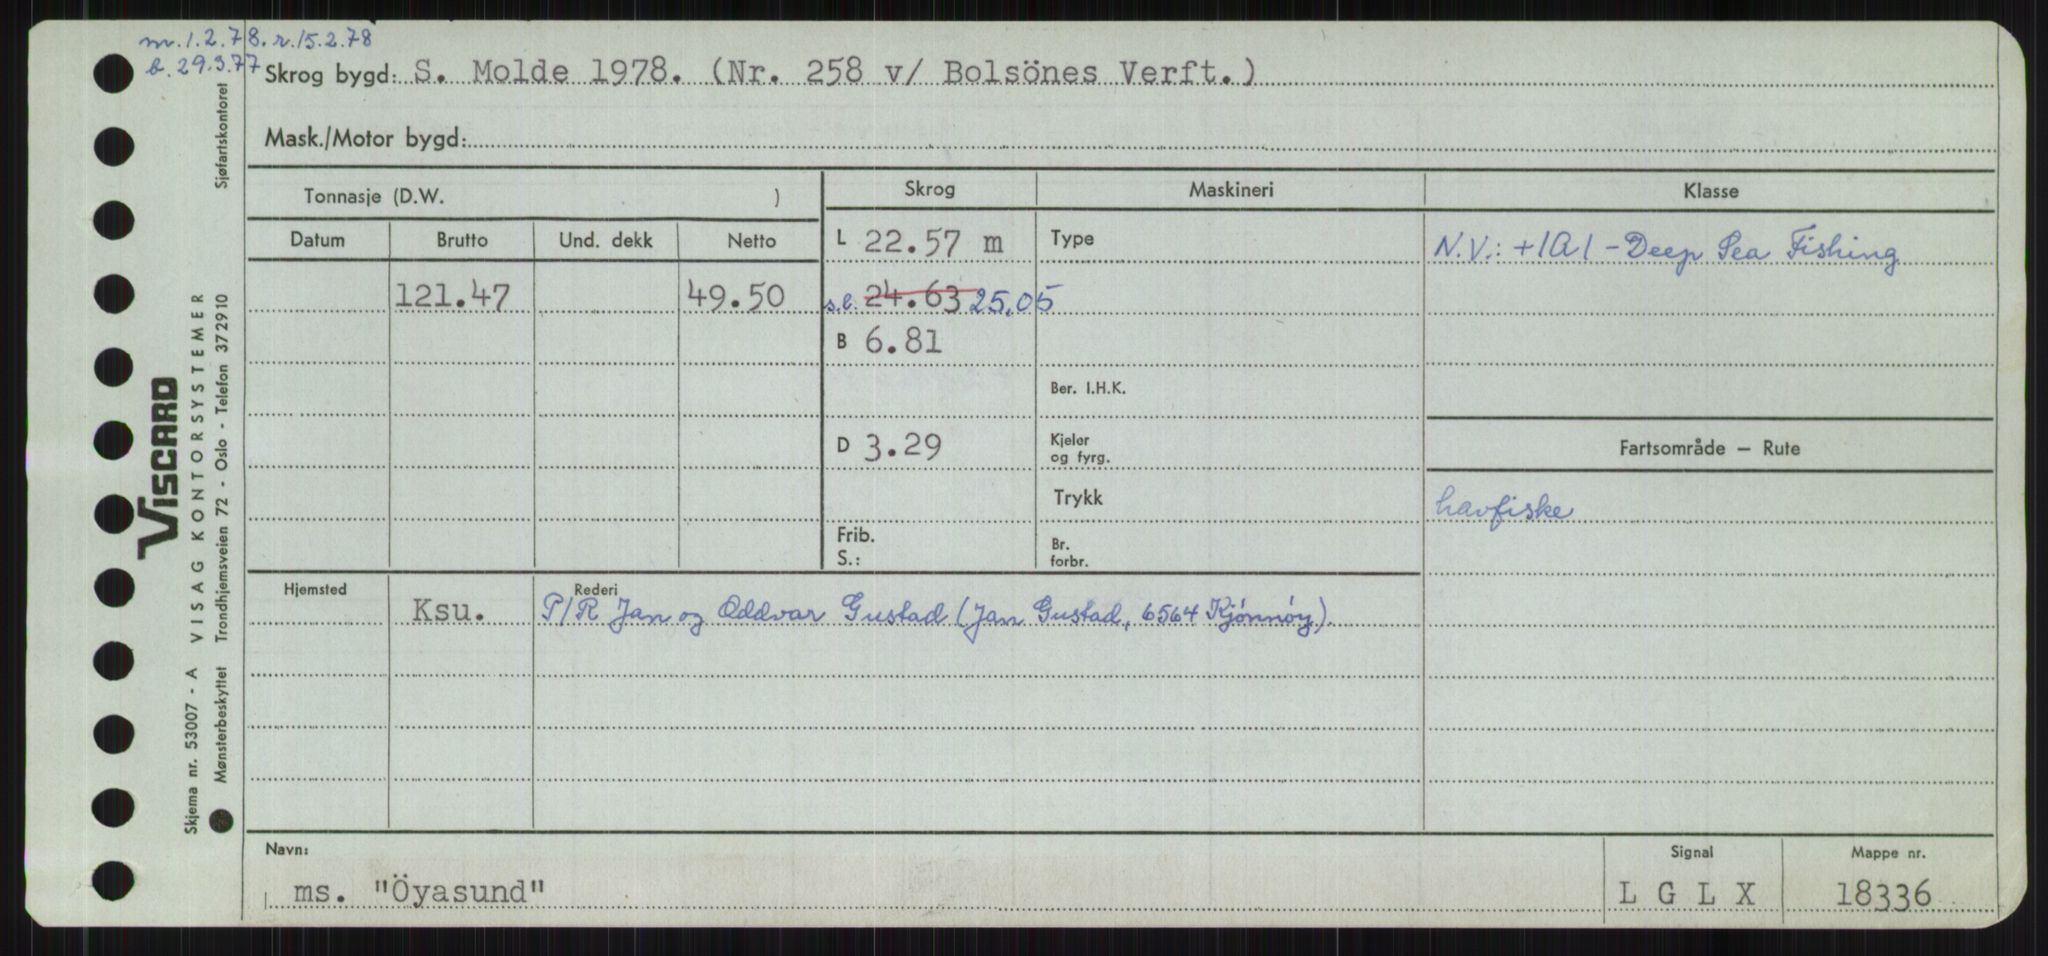 m. 1.2.78. r. 15.2.78
b. 29.3.77
Skrog bygd: S. Molde 1978. (Nr. 258 v/ Bolsönes Verft.)
Mask./Motor bygd:
Tonnasje (D.W. )
Skrog
Maskineri
Klasse
Datum
Brutto
Und. dekk
Netto
L 22.57 m
Type
N.V.: +1A1 - Deep Sea Fishing
121.47
49.50
s.l. 24.63 25,05
B 6.81
Ber. I.H.K.
D 3.29
Kjeler
og fyrg.
Fartsområde — Rute
Trykk
havfiske
Frib.
S.:
Br.
forbr.
Hjemsted
Rederi
Ksu.
P/R Jan og Oddvar Gustad (Jan Gustad, 6564 Kjónnóy).
Navn:
ms. "Öyasund"
Signal
L G L X
Mappe nr.
18336
VISCARD
Skjema nr. 53007 - A VISAG KONTORSYSTEMER
Mønsterbeskyttet Trondhjemsveien 72 - Oslo - Telefon 372910 Sjøfartskontoret